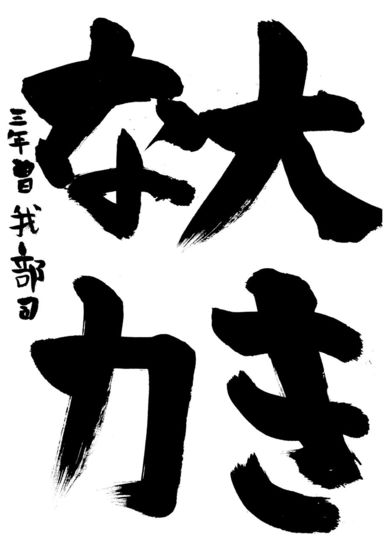 大き
な力
三年曽我部司